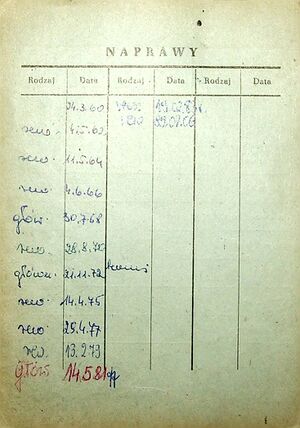 NAPRAWY
Rodzaj Data Rodzaj Data Rodzaj Data
24.3.60 19.02.83r.
rewo. 4.5.62
rewo. 11.5.64
rewo. 4.6.66
główn. 30.7.68
rewo. 28.8.70
główna. 21.11.72
rewo. 14.4.75
rewo. 29.4.77
rew. 13.2.79
główn 14.5.81